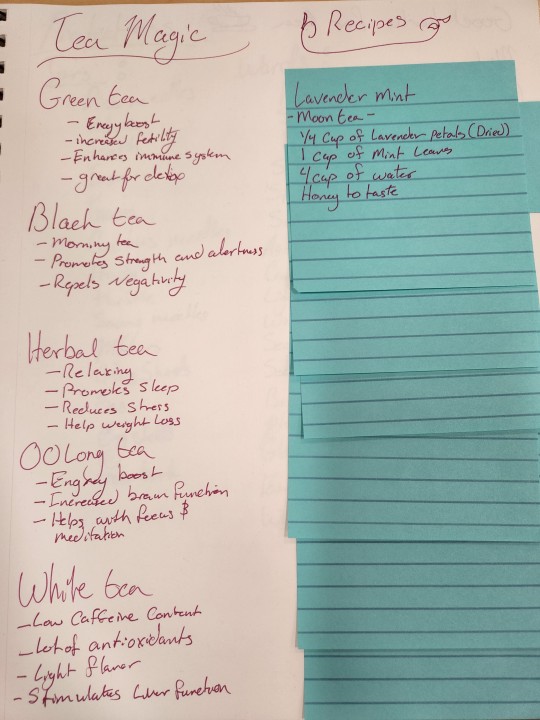 Tea Magic
Green tea
- Engyboost
- increased fetility
- Enhances immune system
- great for detox
Black tea
- Morning tea
- Promotes strength and alertness
- Repels Negativity
Herbal tea
- Relaxing
- Promotes Sleep
- Reduces Stress
- Help weight Loss
OOLong tea
- Engrey boost
- Increased brain function
- Helps with focus &
meditation
White tea
- Low Caffeine Content
- Lot of antioxidants
- Light flavor
- Stimulates Liver function
Recipes
Lavender mint
- Moon tea -
1/4 Cup of Lavender Petals (Dried)
1 Cup of Mint Leaves
4 Cup of water
Honey to taste